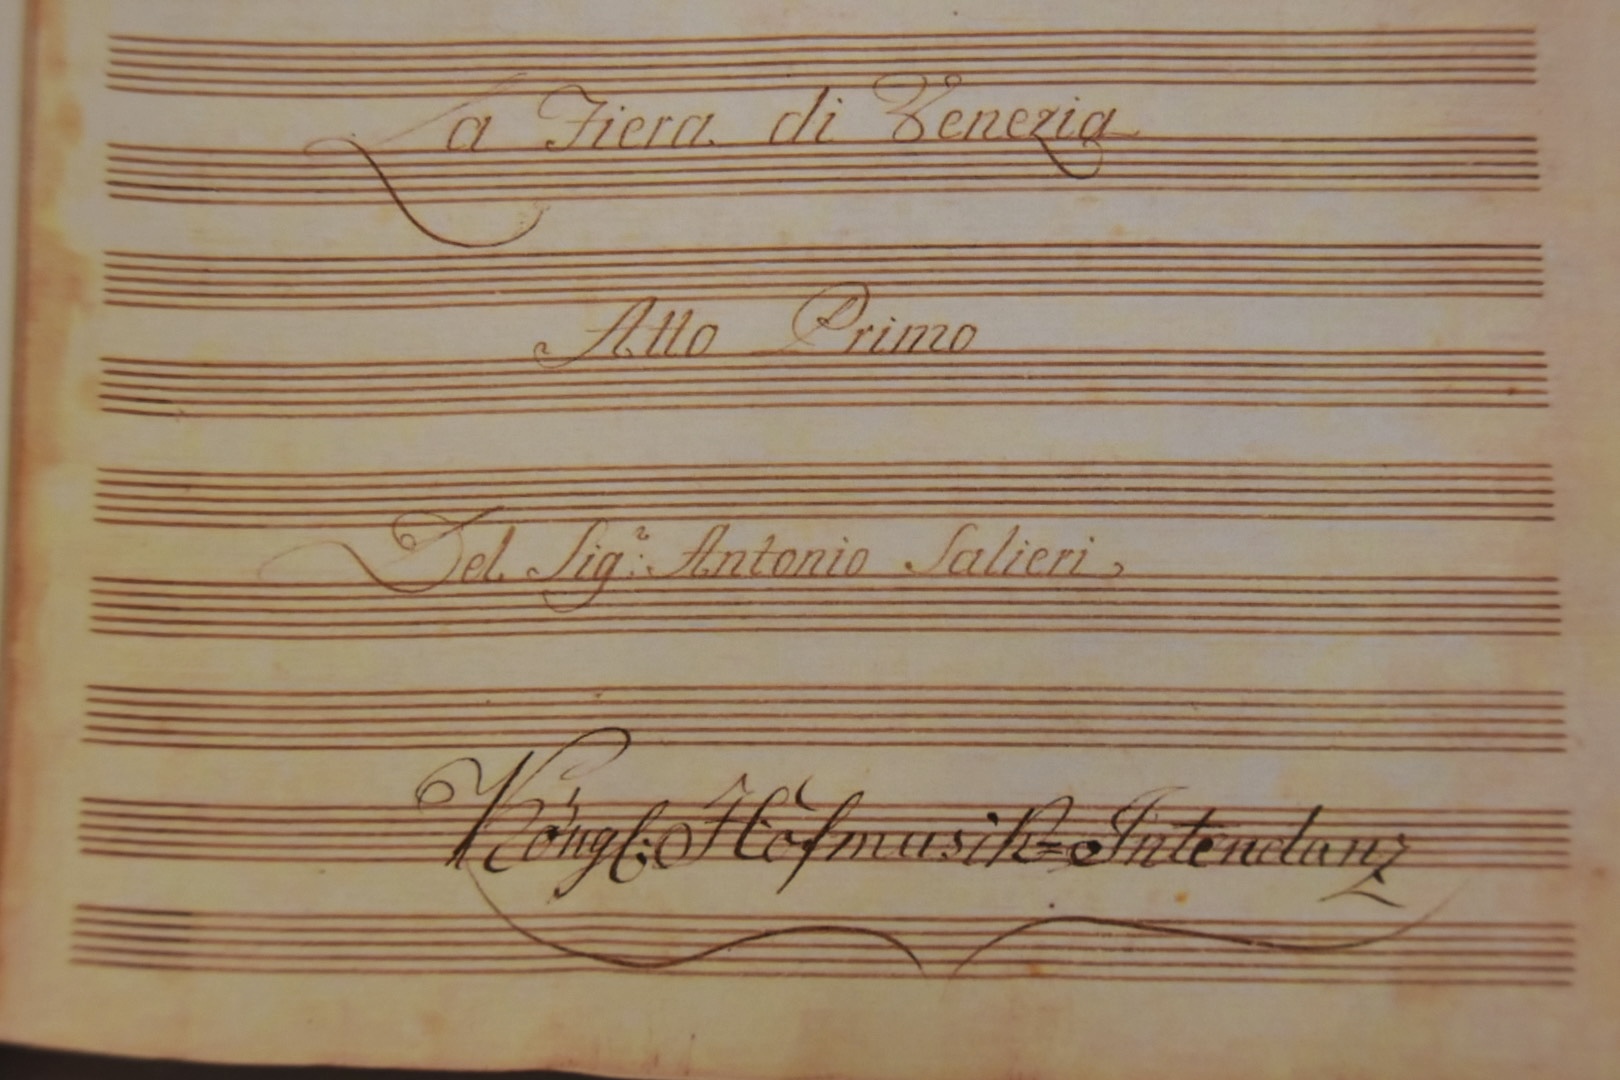 La Fiera di Venezia
Atto Primo
Del Sigr: Antonio Salieri
Köngl: Hofmusik=Intendanz